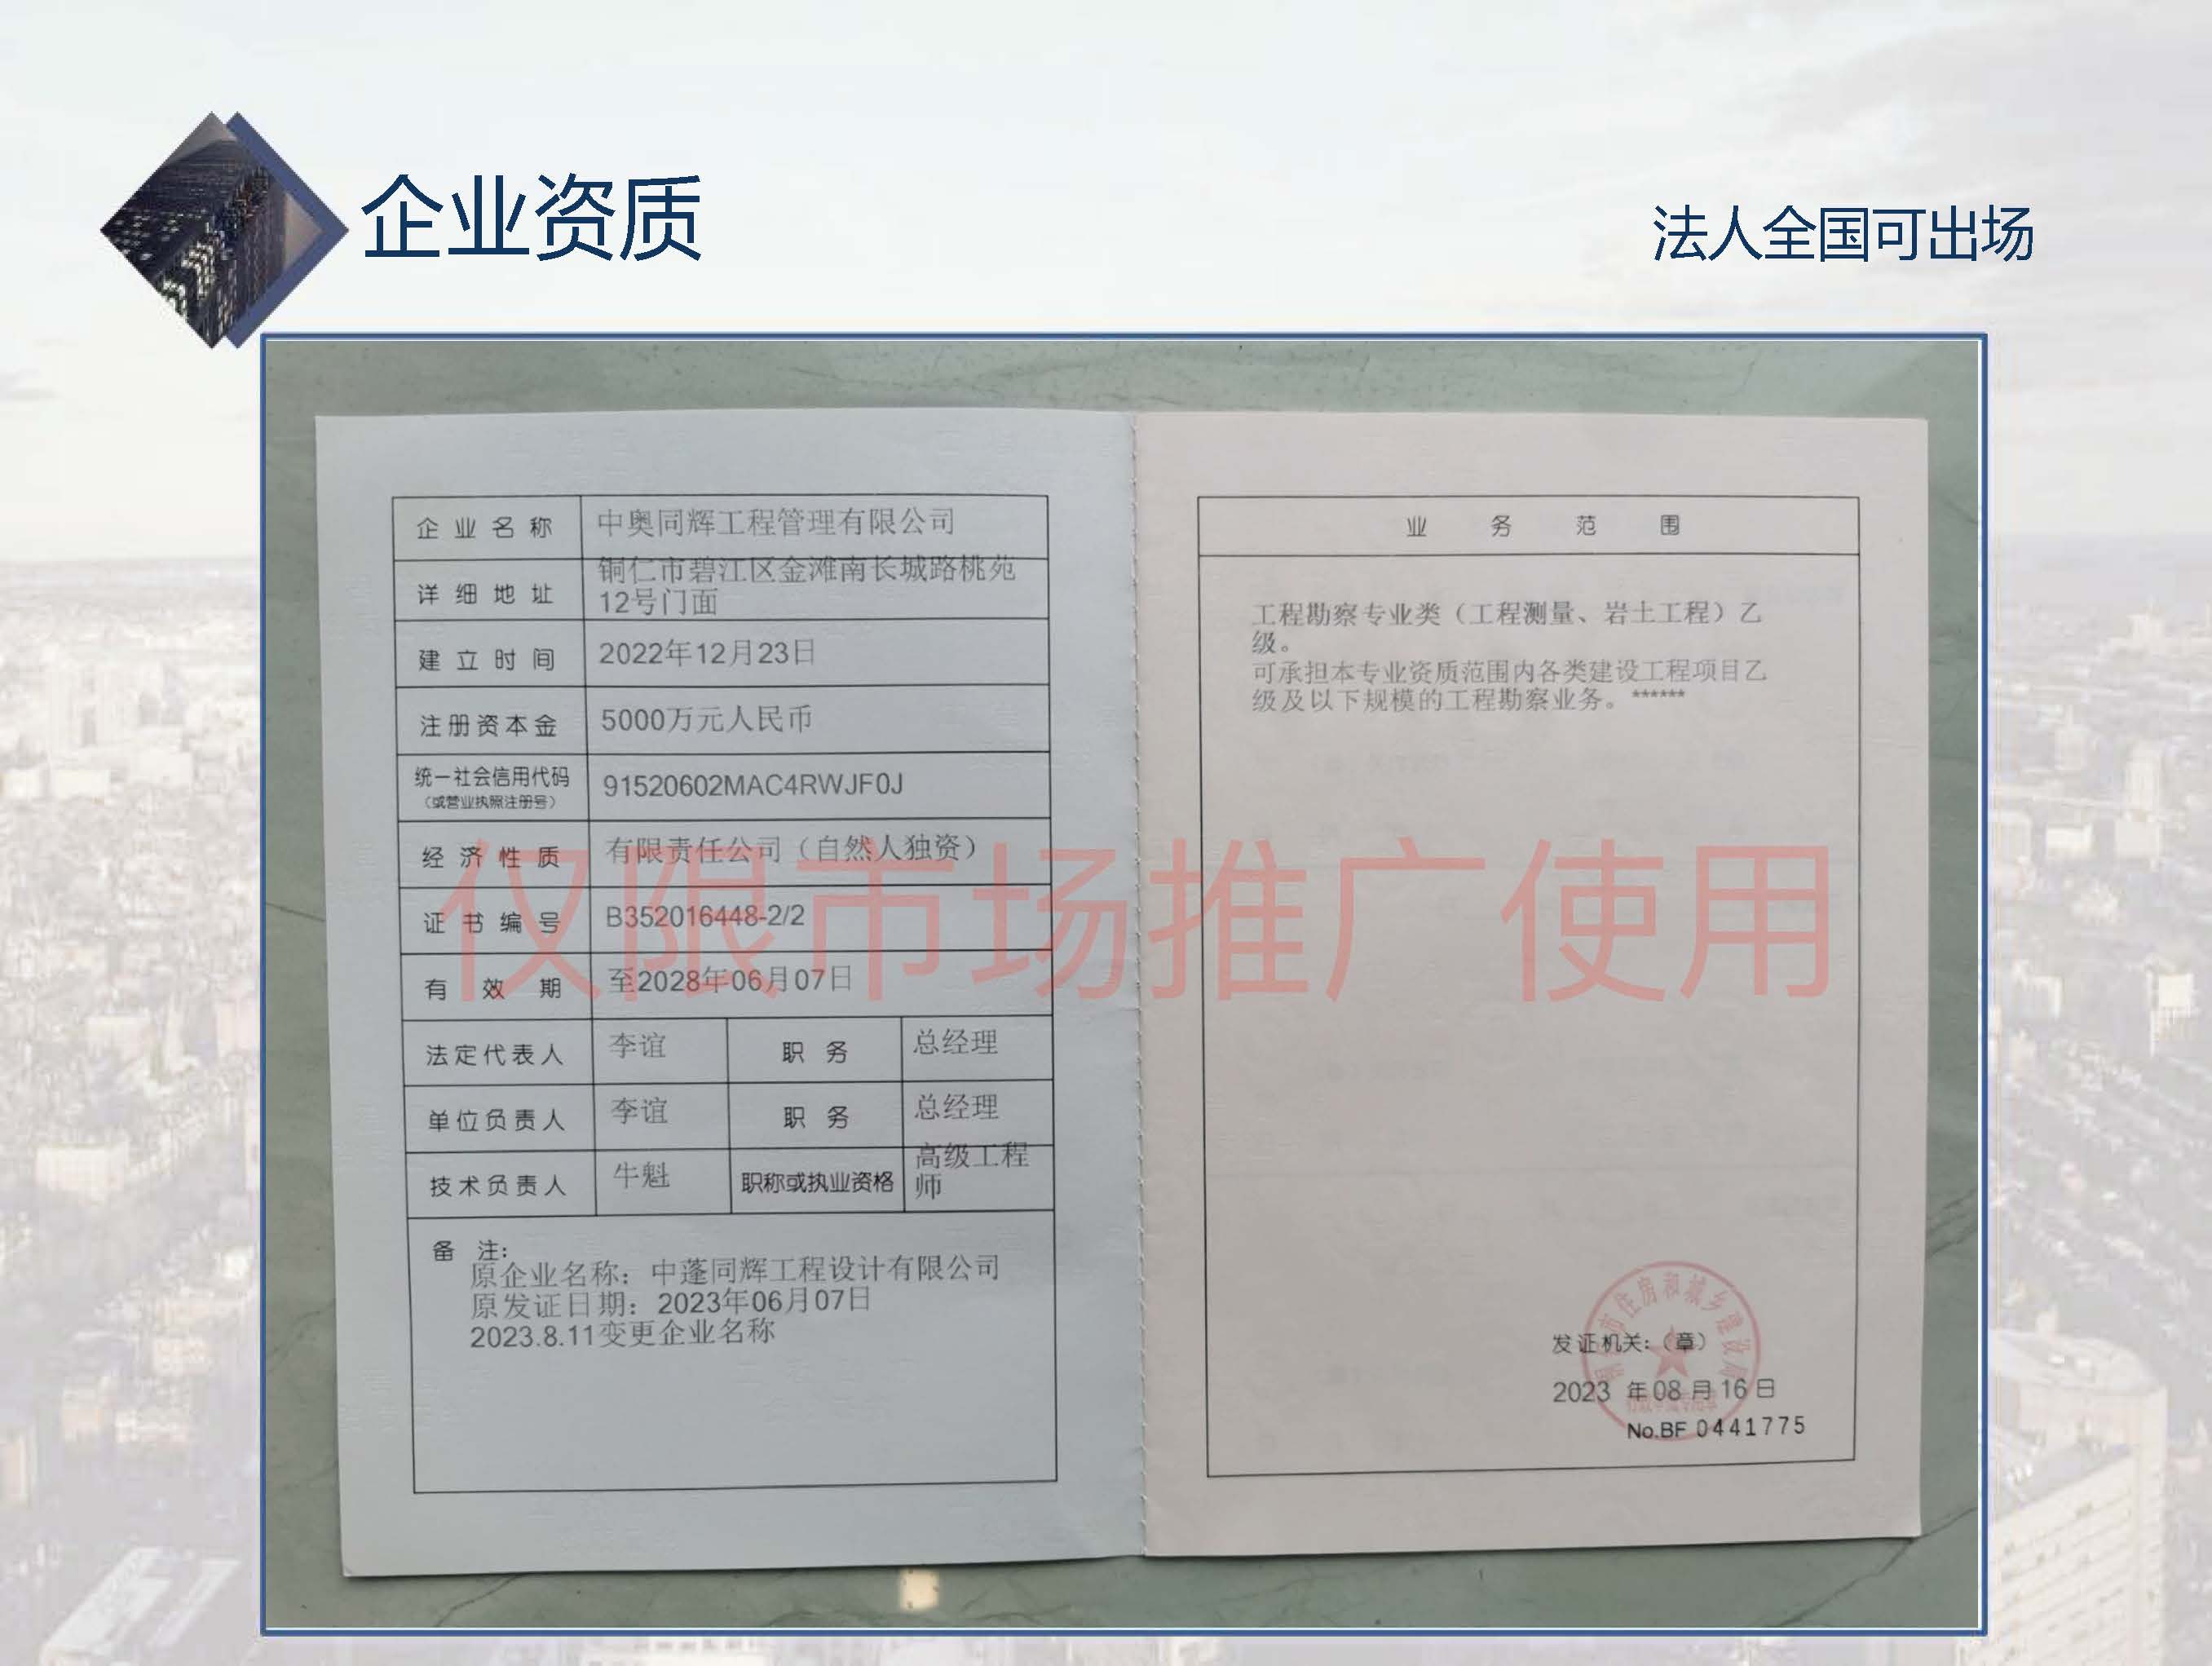 企业资质
法人全国可出场
企业名称 中奥同辉工程管理有限公司
详细地址 铜仁市碧江区金滩南长城路桃苑
12号门面
建立时间 2022年12月23日
注册资本金 5000万元人民币
统一社会信用代码
（或营业执照注册号） 91520602MAC4RWJF0J
经济性质 有限责任公司（自然人独资）
证书编号 B352016448-2/2
有效期 至2028年06月07日
法定代表人 李谊 职务 总经理
单位负责人 李谊 职务 总经理
技术负责人 牛魁 职称或执业资格 高级工程
师
备注:
原企业名称：中蓬同辉工程设计有限公司
原发证日期：2023年06月07日
2023.8.11变更企业名称
业务范围
工程勘察专业类（工程测量、岩土工程）乙
级。
可承担本专业资质范围内各类建设工程项目乙
级及以下规模的工程勘察业务。******
仅限市场推广使用
市住房和城乡建设局
发证机关:（章）
2023 年 08 月 16 日
No.BF 0441775